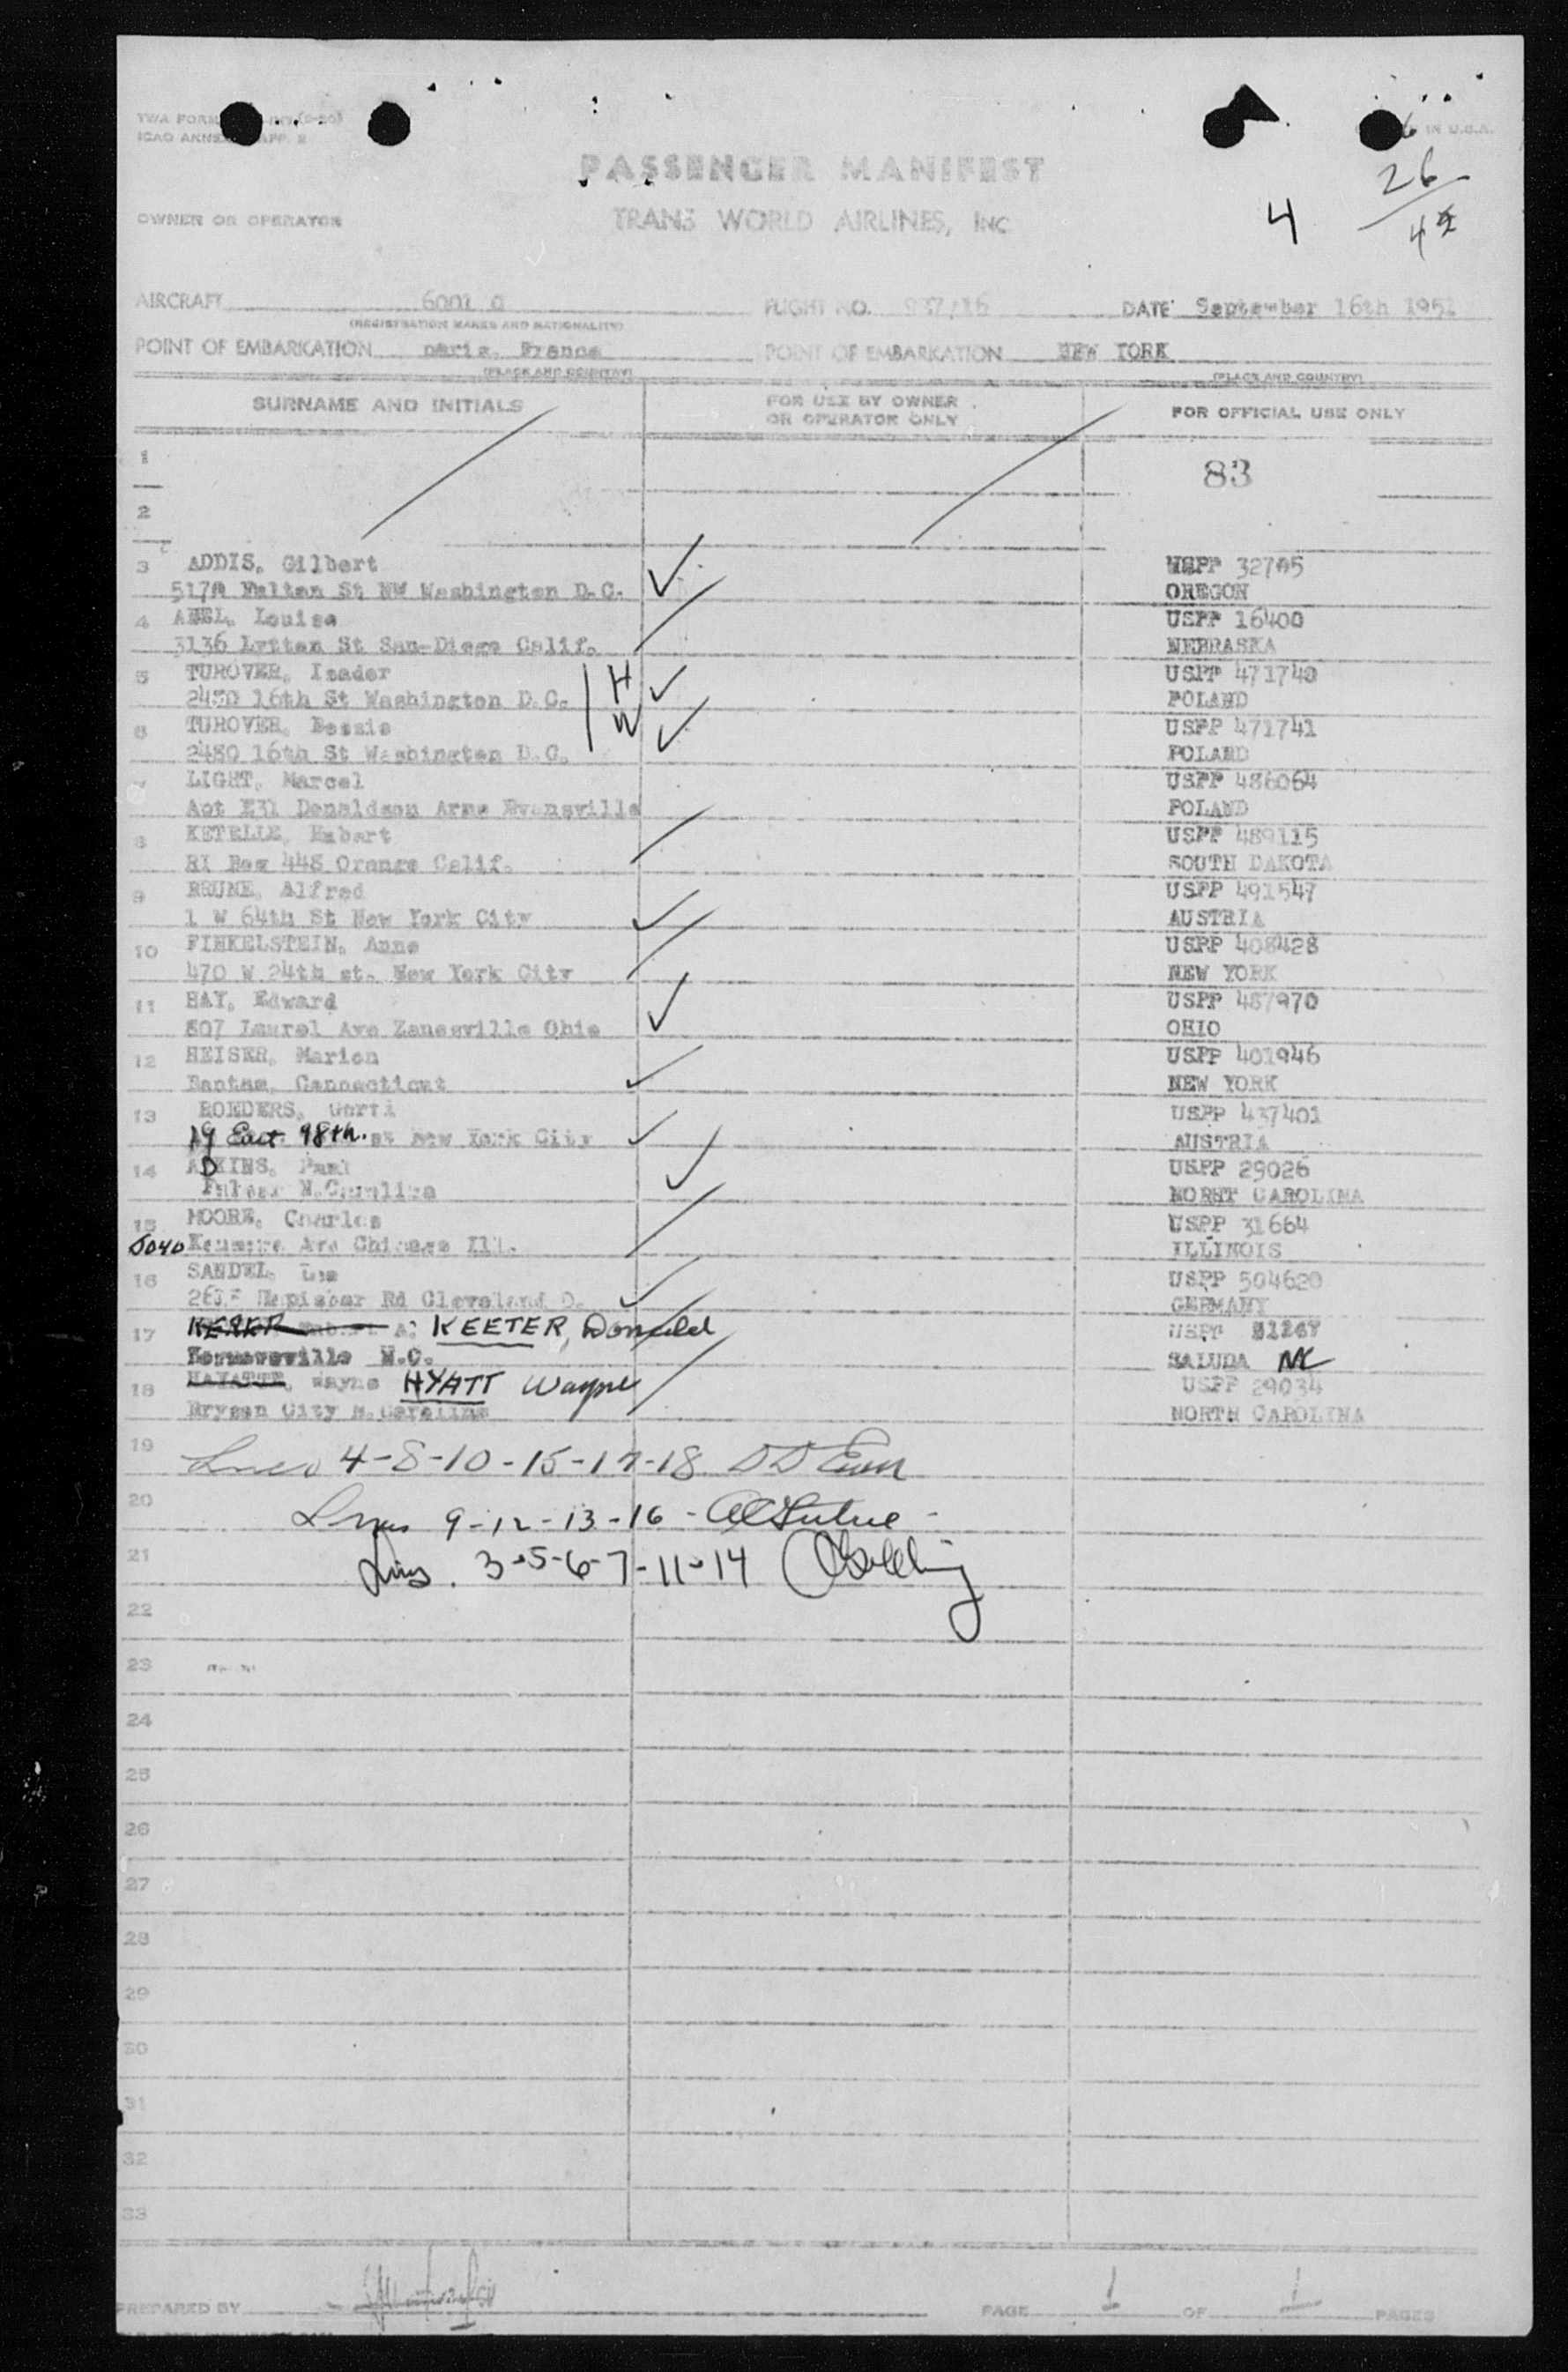 TWA FORM
ICAO ANNEX APP. 2
IN U.S.A.
PASSENGER MANIFEST
26
4
OWNER OR OPERATOR
TRANS WORLD AIRLINES, INC
AIRCRAFT 6001 FLIGHT NO. 937/16 DATE September 16th 1951
(REGISTRATION MARKS AND NATIONALITY)
POINT OF EMBARKATION paris, France POINT OF EMBARKATION NEW YORK
(PLACE AND COUNTRY) (PLACE AND COUNTRY)
SURNAME AND INITIALS FOR USE BY OWNER OR OPERATOR ONLY FOR OFFICIAL USE ONLY
1 83
2
3 ADDIS, Gilbert USPP 32705
St NW Washington D.C. OREGON
4 ABEL, Louise USPP 16400
3136 Lytton St San-Diego Calif. NEBRASKA
5 TUROVER, Isador H USPP 471740
2480 16th St Washington D.C. POLAND
6 TUROVER, Bessie W USPP 471741
2480 16th St Washington D.C. POLAND
7 LIGHT, Marcel USPP 486064
Apt E31 Donaldson Arms Evansville POLAND
8 KETELLE, Hubert USPP 489115
RI Box 448 Orange Calif. SOUTH DAKOTA
9 BRUNE, Alfred USPP 491547
1 W 64th St New York City AUSTRIA
10 FINKELSTEIN, Anne USPP 408428
470 W 24th st. New York City NEW YORK
11 HAY, Edward USPP 487970
807 Laurel Ave Zanesville Ohio OHIO
12 HEISER, Marion USPP 401946
Bantam, Connecticut NEW YORK
13 ROEDERS, Gerti USPP 437401
19 East 98th. st New York City AUSTRIA
14 ADKINS, Paul USPP 29026
N.Carolina NORHT CAROLINA
15 MOORE, Charles USPP 31664
5040 Kenmore Ave Chicago Ill. ILLINOIS
16 SANDEL, Leo USPP 504620
Rd Cleveland O. GERMANY
17 KEETER, Donald USPP 31267
N.C. SALUDA NC
18 Wayne HYATT Wayne USPP 29034
Bryson City N.Carolina NORTH CAROLINA
19 Lines 4-8-10-15-17-18
20 Lines 9-12-13-16 -
21 Lines. 3-5-6-7-11-14
22
23
24
25
26
27
28
29
30
31
32
33
PREPARED BY PAGE 1 OF 1 PAGES